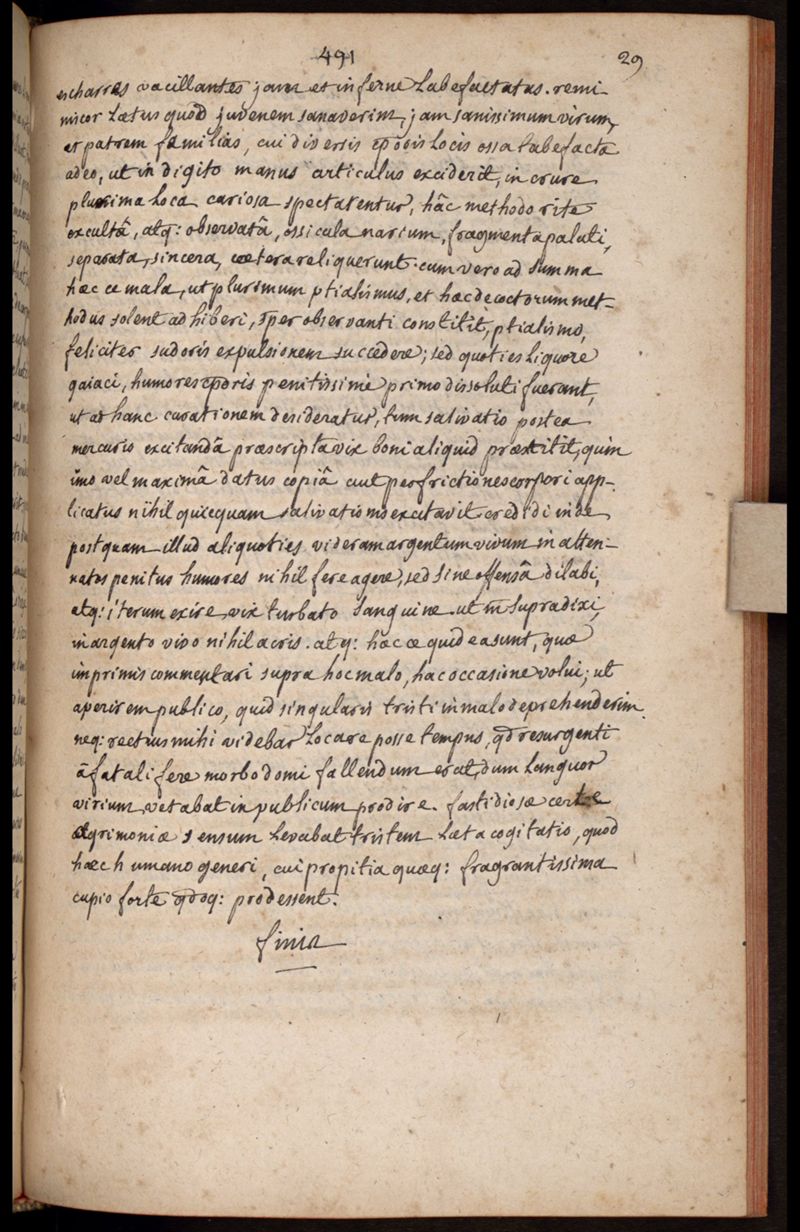 491 29
escharras vacillantes jam et inferne labefactatas. remi-
niscor lætus quod juvenem sanaverim, jam sanissimum virum,
et patrem familias, cui diversis corporis locis ossa labefacta
adeo, ut in digito manus articulus exciderit, in crure
plurima loca cariosa spectarentur, hâc methodo rite
excultâ, atq: observatâ, ossicula narium, fragmenta palati,
separata, sincera, cætera reliquerunt. cum vero ad summa
hæcce mala, ut plurimum ptialismus, et hæc decoctorum met-
hodus solent adhiberi, semper observanti constitit, ptialismo,
feliciter sudoris expulsionem succedere; sed quoties liquore
gaiaci, humores corporis penitissime primo dissoluti fuerant,
ut ad hanc curationem desideratur, tum salivatio postea
mercurio excitanda præscripta vix boni aliquid præstitit, quin
imo vel maximâ datus copiâ aut per frictiones corpori app-
licatus nihil quicquam salivationis excitavit credidi inde
postquam illud aliquoties videram argentum vivum in atten-
uatos penitus humores nihil fere agere, sed sine offensâ dilabi,
atq: iterum exire vix turbato sanguine. ut m̄ supra dixi,
in argento vivo nihil acris. atq: hæc æquidea sunt, quæ
imprimis commentari supra hoc malo, hac occasione volui; ut
aperirem publico, quid singularis tristi in malo deprehenderim.
neq: rectius mihi videbar locare posse tempus, qd resurgenti
â fatali fere morbo domi fallendum erat, dum languor
virium vetabat in publicum prodire. fastidiosæ certe
ægrimoniæ sensum levabat tristem læta cogitatio, quod
hæc humano generi, cui propitia quæq: fragrantissima
cupio forte qdoq: prodessent.
finis